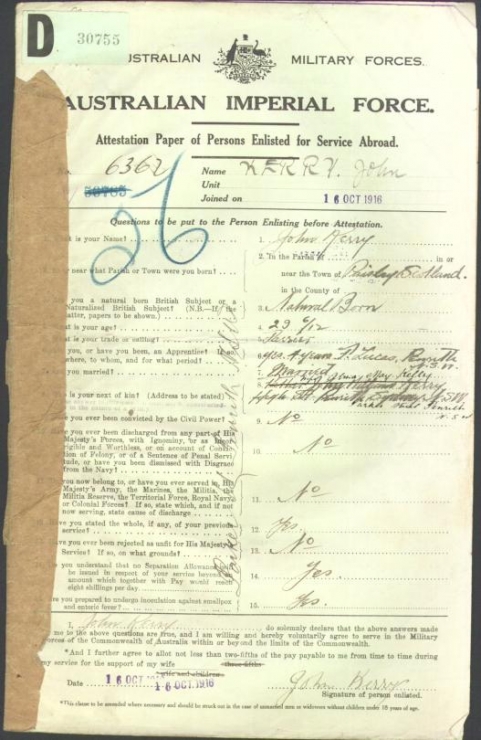 D
30755
AUSTRALIAN MILITARY FORCES.
AUSTRALIAN IMPERIAL FORCE.
Attestation Paper of Persons Enlisted for Service Abroad.
6362 Name KERRY. John
26
Unit
Joined on 16 OCT 1916
Questions to be put to the Person Enlisting before Attestation.
at is your Name? 1. John Kerry
2. In the Parish of in or
or near what Parish or Town were you born? near the Town of Paisley Scotland.
in the County of
you a natural born British Subject or a 3. Natural Born
Naturalized British Subject? (N.B.—If the
latter, papers to be shown.)
at is your age? 4.
at is your trade or calling? 5.
you, or have you been, an Apprentice? If so, 6. yes 4 years
where, to whom, and for what period?
you married? 7. Married
o is your next of kin? (Address to be stated) 8.
ve you ever been convicted by the Civil Power? 9. No
ve you ever been discharged from any part of His 10. No
Majesty's Forces, with Ignominy, or as Incor-
rigible and Worthless, or on account of Convic-
tion of Felony, or of a Sentence of Penal Servi-
tude, or have you been dismissed with Disgrace
from the Navy?
you now belong to, or have you ever served in, His 11. No
Majesty's Army, the Marines, the Militia, the
Militia Reserve, the Territorial Force, Royal Navy,
or Colonial Forces? If so, state which, and if not
now serving, state cause of discharge
ve you stated the whole, if any, of your previous 12. Yes.
service?
ve you ever been rejected as unfit for His Majesty's 13. No
Service? If so, on what grounds?
you understand that no Separation Allowance 14. Yes.
be issued in respect of your service beyond
amount which together with Pay would reach
eight shillings per day
are you prepared to undergo inoculation against smallpox 15. Yes.
and enteric fever?
I, John Kerry do solemnly declare that the above answers made
me to the above questions are true, and I am willing and hereby voluntarily agree to serve in the Military
Forces of the Commonwealth of Australia within or beyond the limits of the Commonwealth.
*And I further agree to allot not less than two-fifths of the pay payable to me from time to time during
my service for the support of my wife three-fifths
and children
Date 16 OCT 1916 John Kerry
Signature of person enlisted.
*This clause to be amended where necessary and should be struck out in the case of unmarried men or widowers without children under 18 years of age.